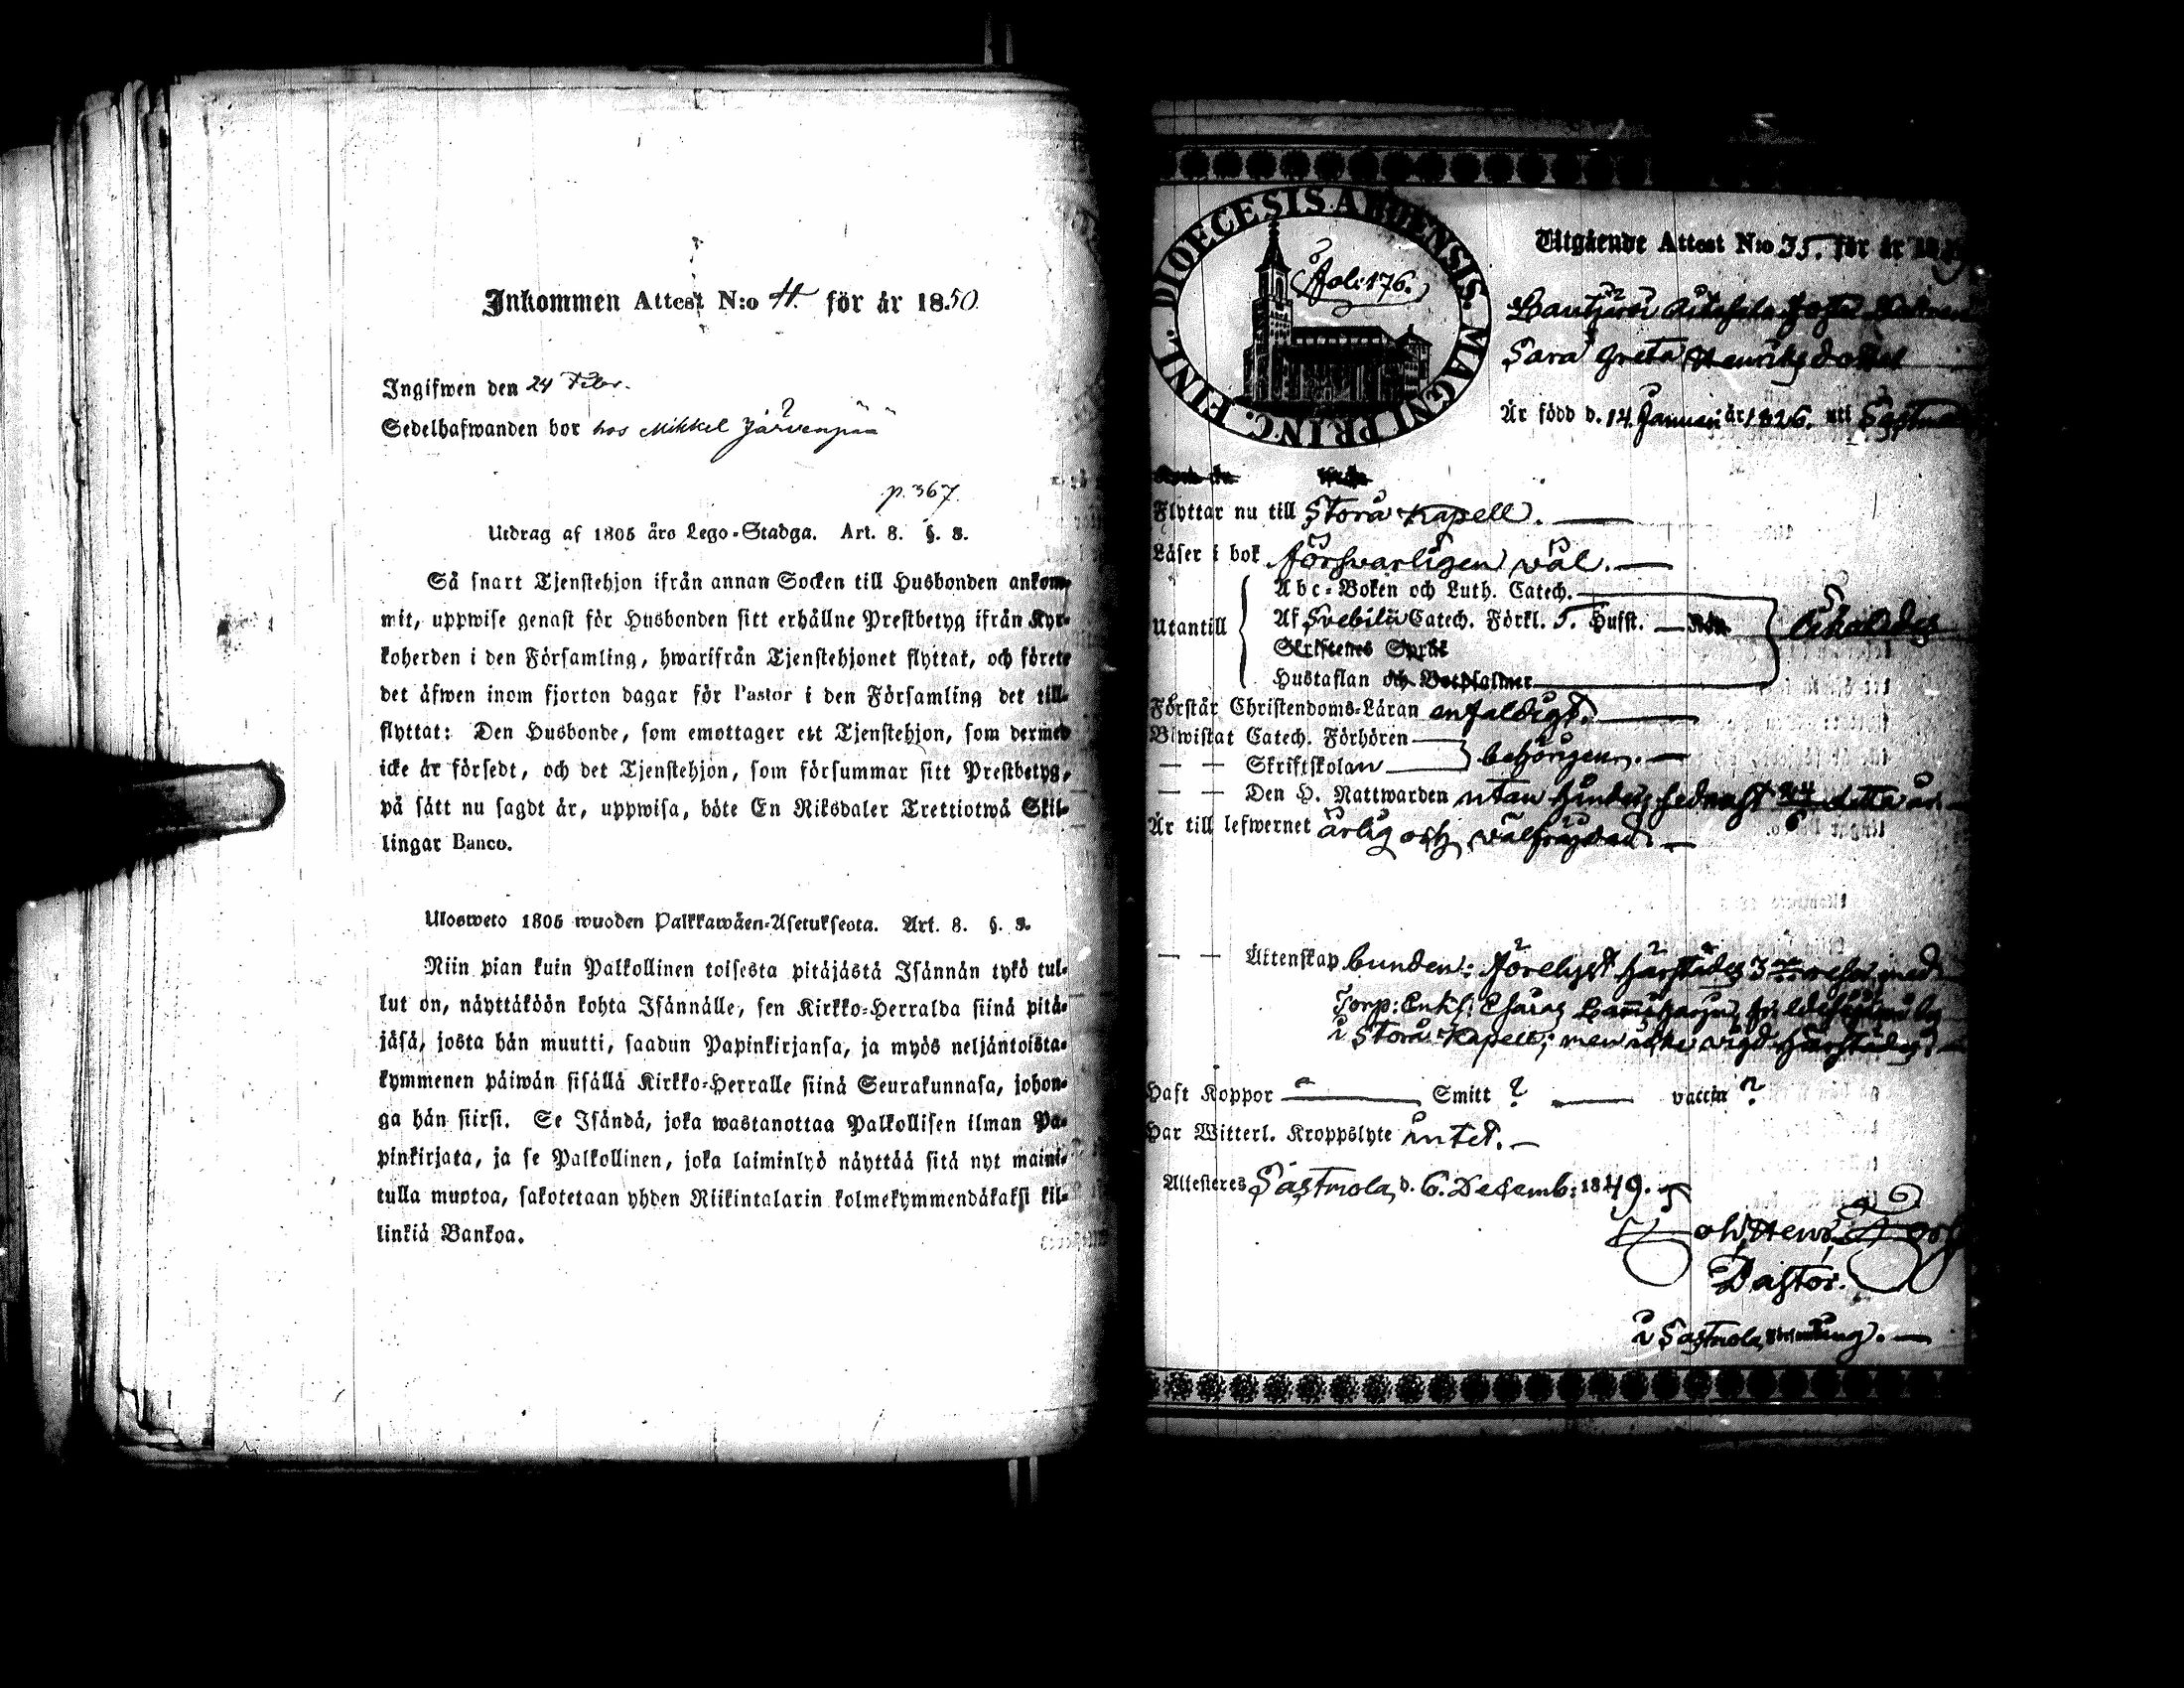 Inkommen Attest N:o 11. för år 1850.
Ingifwen den 24 Febr.
Sedelhafwanden bor hos Mikkel Järvenpää
p. 367.
Utdrag af 1805 års Lego-Stadga. Art. 8. §. 3.
Så snart Tjenstehjon ifrån annan Socken till Husbonden ankom-
mit, uppwise genast för Husbonden sitt erhållne Prestbetyg ifrån Kyr-
koherden i den Församling, hwarifrån Tjenstehjonet flyttat, och förete
det äfwen inom fjorton dagar för Pastor i den Församling det till-
flyttat: Den Husbonde, som emottager ett Tjenstehjon, som dermed
icke är försedt, och det Tjenstehjon, som försummar sitt Prestbetyg,
på sätt nu sagdt är, uppwisa, böte En Riksdaler Trettiotwå Skil-
lingar Banco.
Ulosweto 1805 wuoden Palkkawäen-Asetuksesta. Art. 8. §. 3.
Niin pian kuin Palkollinen toisesta pitäjästä Isännän tykö tul-
lut on, näyttäköön kohta Isännälle, sen Kirkko-Herralda siinä pitä-
jäsä, josta hän muutti, saadun Papinkirjansa, ja myös neljäntoista-
kymmenen päiwän sisällä Kirkko-Herralle siinä Seurakunnasa, johon-
ga hän siirsi. Se Isändä, joka wastanottaa Palkollisen ilman Pa-
pinkirjata, ja se Palkollinen, joka laiminlyö näyttää sitä nyt maini-
tulla muotoa, sakotetaan yhden Riikintalarin kolmekymmendäkaksi kil-
linkiä Bankoa.
DIOECESIS ABOENSIS. MAGNI PRINC. FINL.
Fol: 176.
Utgående Attest N:o 35. för år
Sara Greta Henriksdotter
Är född d. 14. Januari år 1826. uti
Flyttar nu till Storå Kapell.
Läser i bok försvarligen väl.
Utantill
Abc-Boken och Luth. Catech.
Af Svebilii Catech. Förkl. 5. Hufst.
Skriftenes Språk
Hustaflan och Botpsalmer
Förstår Christendoms-Läran enfaldigt.
Biwistat Catech. Förhören
— — Skriftskolan behörigen.
— — Den H. Nattwarden utan hinder, sednast detta år
Är till lefwernet ärlig och välfräjdad.
— — Ättenskap bunden: förelyst härstädes 3 med
i Storå Kapell; men icke vigd härstädes.
Haft Koppor — Smitt ? — vaccin ?
Har Witterl. Kroppslyte intet.
Attesteres Sastmola, d. 6. Decemb: 1849.
Pastor.
i Sastmola Församling.